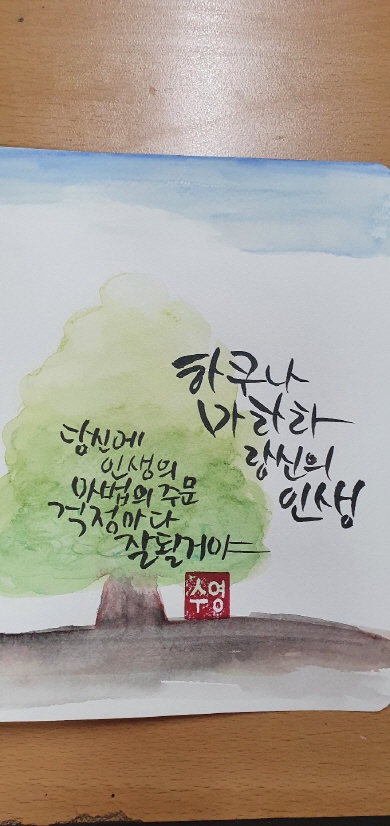 하쿠나
마타타
당신의
인생
당신에
인생의
마법의 주문
걱정마다
잘될거야
수영